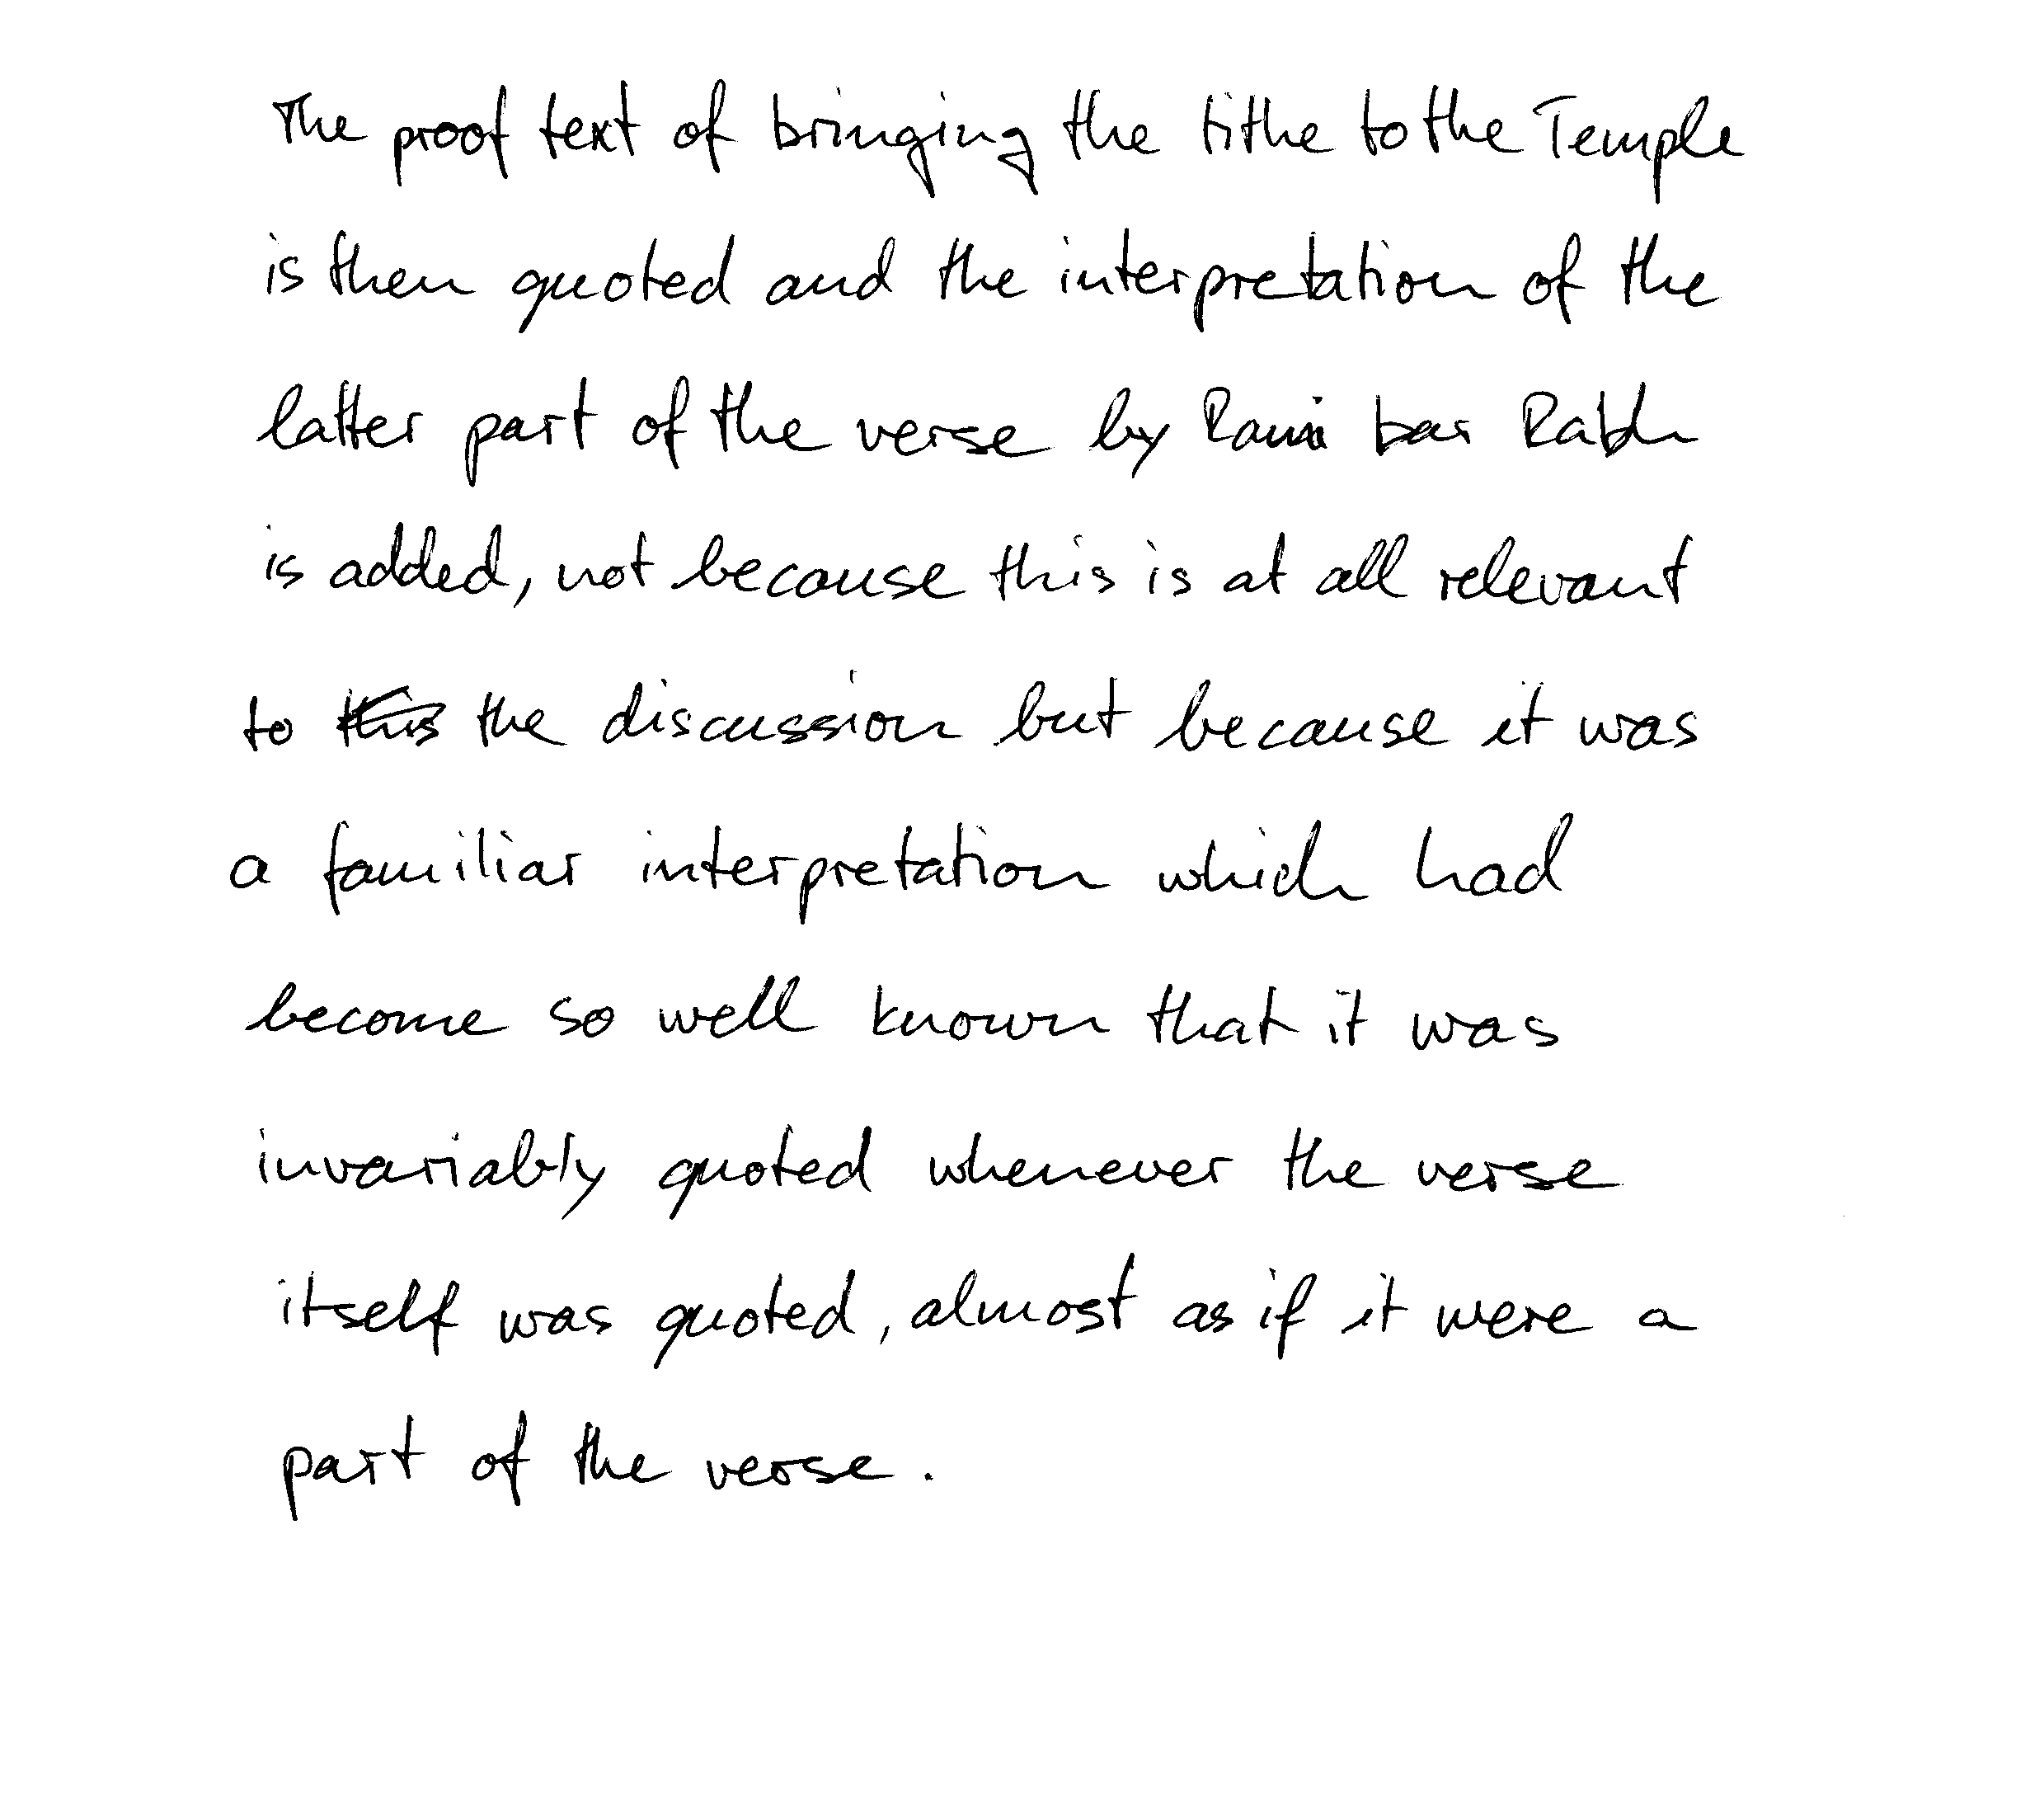 The proof text of bringing the tithe to the Temple
is then quoted and the interpretation of the
latter part of the verse by Rami bar Rabh
is added, not because this is at all relevant
to this the discussion but because it was
a familiar interpretation which had
become so well known that it was
invariably quoted whenever the verse
itself was quoted, almost as if it were a
part of the verse.